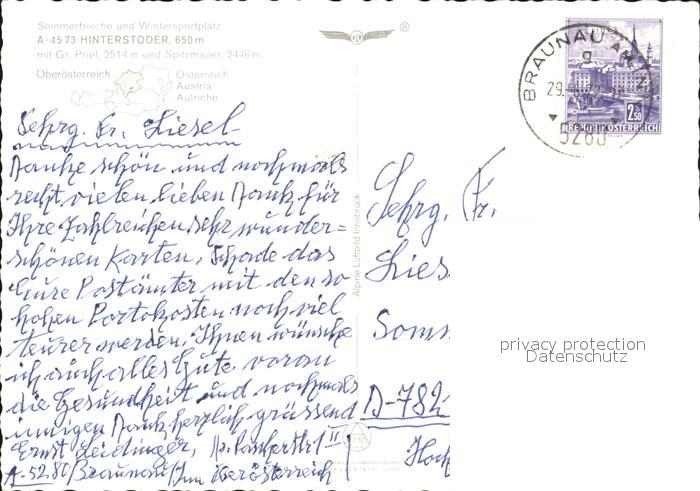 Sommerfrische und Wintersportplatz
A-4573 HINTERSTODER, 650 m
mit Gr. Priel, 2514 m und Spitzmauer, 2446 m,
Oberösterreich
Österreich
Austria
Autriche
BRAUNAU AM
g
29.
5280
2,50
REPUBLIK ÖSTERREICH
Sehrg. Fr. Liesel
Danke schön und nochmals
recht vielen lieben Dank für
Ihre Zahlreichen sehr wunder=
schönen Karten. Schade das
Eure Postämter mit den so
hohen Portokosten noch viel
teurer werden. Ihnen wünsche
ich auch alles Gute voran
die Gesundheit und nochmals
innigen Dank herzlich grüssend
Ernst Leidinger,
A-5280/Braunau/Inn Oberösterreich
Alpine Luftbild Innsbruck
Sehrg. Fr.
Lies
Somm
D-782
Hoch
privacy protection
Datenschutz